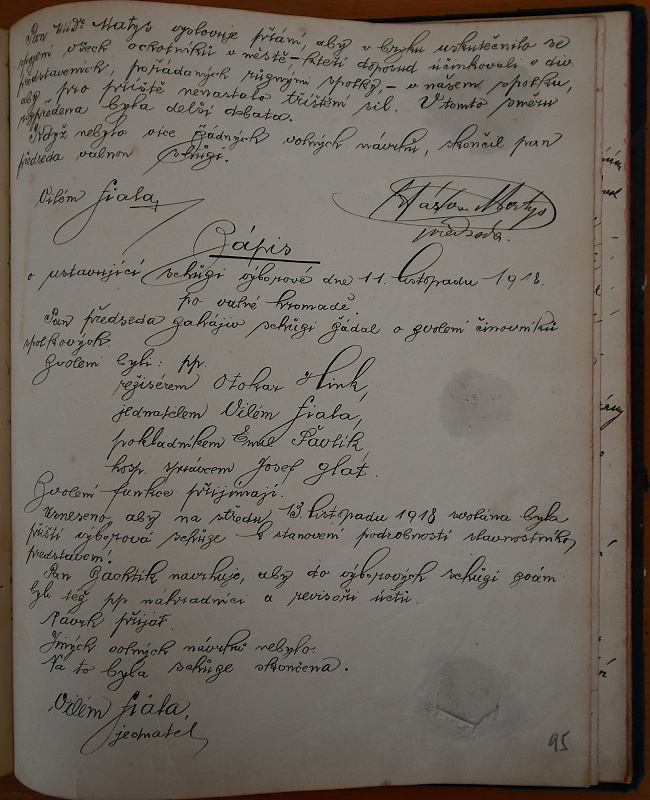 Pan JUDr Matys vyslovuje přání, aby v brzku uskutečnilo se
spojení všech ochotníků v městě – kteří doposud účinkovali v div.
představeních, pořádaných různými spolky, – v našem spolku,
aby pro příště nenastalo tříštění sil. V tomto směru
rozpředena byla delší debata.
Když nebylo více žádných volných návrhů, skončil pan
předseda valnou schůzi.
Vilém Fiala,
Matys
předseda.
Zápis
o ustavující schůzi výborové dne 11. listopadu 1918.
po valné hromadě.
Pan předseda zahájiv schůzi žádal o zvolení činovníků
spolkových.
Zvoleni byli: pp.
režisérem Otokar Hink,
jednatelem Vilém Fiala,
pokladníkem Emil
hosp. správcem Josef Glat.
Zvolení funkce přijímají.
Usneseno, aby na středu 13. listopadu 1918 svolána byla
příští výborová schůze k stanovení podrobností slavnostního
představení.
Pan navrhuje, aby do výborových schůzí zváni
byli též pp náhradníci a revisoři účtů.
Návrh přijat.
Jiných volných návrhů nebylo.
Na to byla schůze skončena.
Vilém Fiala,
jednatel
95